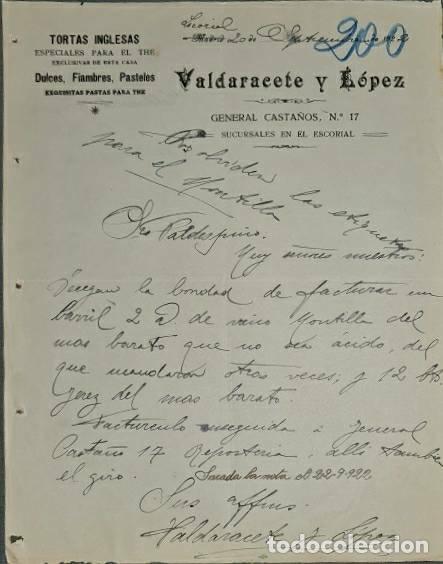 Escorial
Madrid 20 de Septiembre de 192
200
TORTAS INGLESAS
ESPECIALES PARA EL THE
EXCLUSIVAS DE ESTA CASA
Dulces, Fiambres, Pasteles
EXQUISITAS PASTAS PARA THE
Valdaracete y López
GENERAL CASTAÑOS, N.º 17
SUCURSALES EN EL ESCORIAL
no olviden las etiquetas
para el Montilla
Sres Valdespino.
Muy señores nuestros:
Tengan la bondad de facturar un
barril 2 @ de vino Montilla del
mas barato que no sea ácido, del
que mandaron otras veces; y 12 Bts
Jerez del mas barato.
Facturenlo enseguida a General
Castaño 17 Reposteria, alli tambien
el giro. Sacada la nota el 22-9-922
Sus affmos.
Valdaracete y López
todocoleccion.net